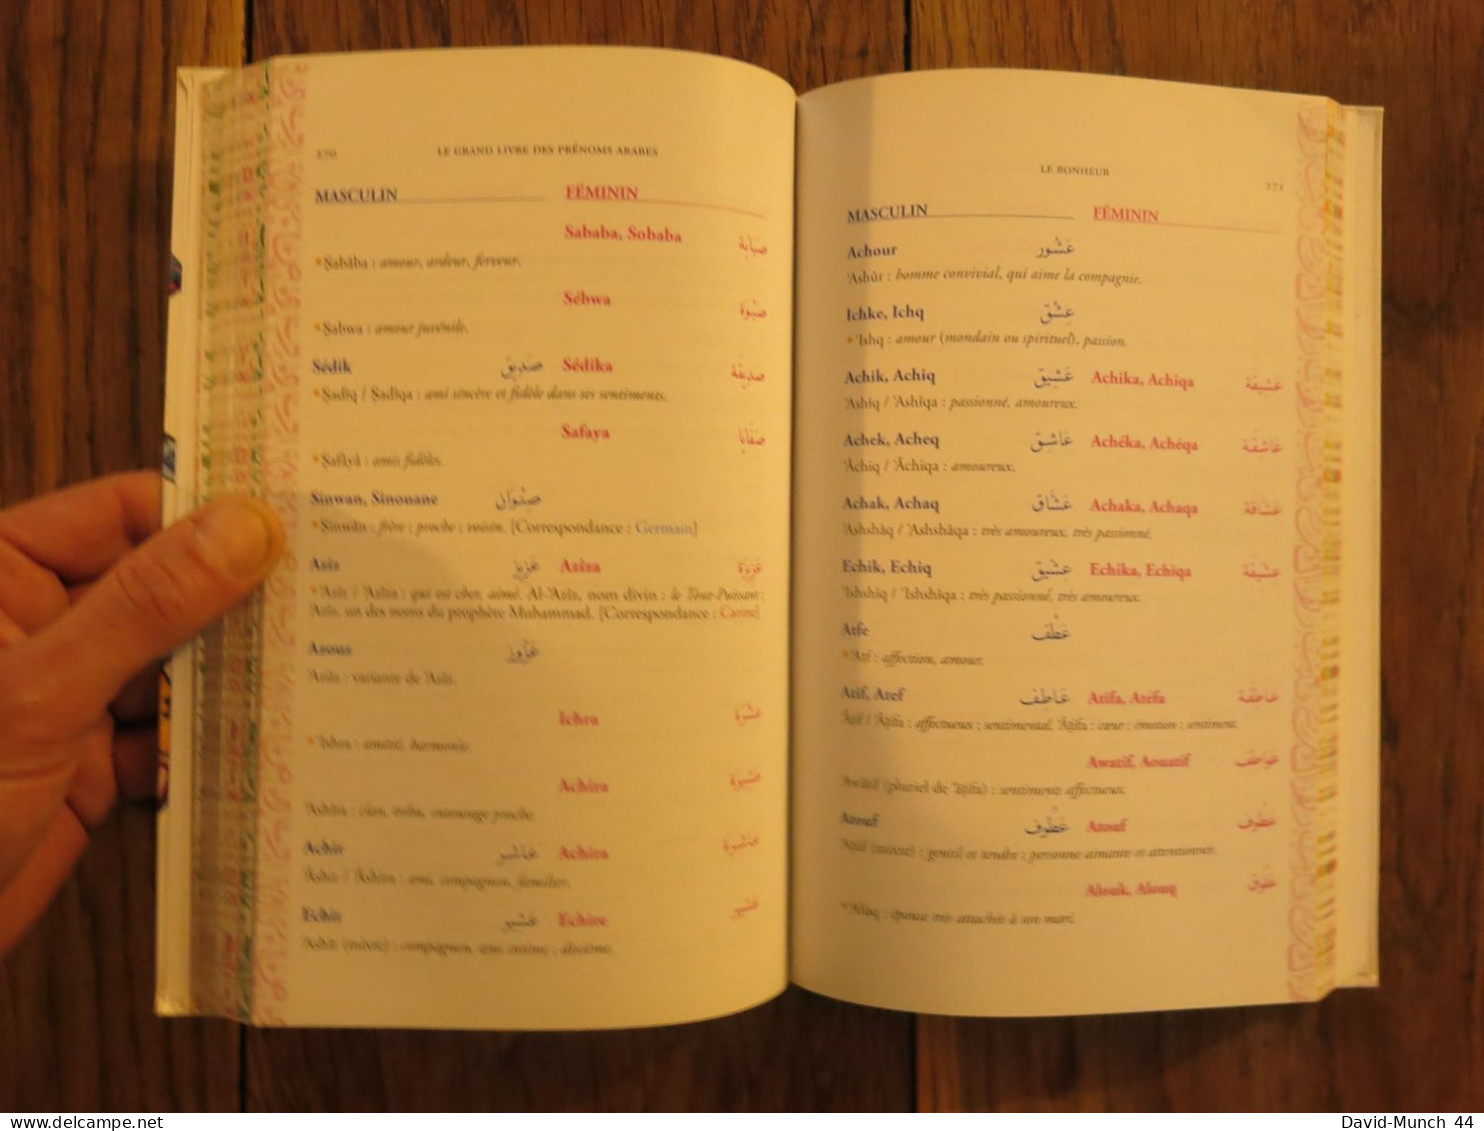 270
LE GRAND LIVRE DES PRÉNOMS ARABES
MASCULIN FÉMININ
Sababa, Sobaba صبابة
• Ṣabâba : amour, ardeur, ferveur.
Sébwa صبوة
• Ṣabwa : amour juvénile.
Sédik صديق Sédika صديقة
• Ṣadîq / Ṣadîqa : ami sincère et fidèle dans ses sentiments.
Safaya صفايا
• Ṣafâyâ : amis fidèles.
Sinwan, Sinouane صنوان
• Ṣinwân : frère ; proche ; voisin. [Correspondance : Germain]
Aziz عزيز Aziza عزيزة
• 'Azîz / 'Azîza : qui est cher, aimé. Al-'Azîz, nom divin : le Tout-Puissant ;
'Azîz, un des noms du prophète Muhammad. [Correspondance : Carine]
Azouz عزوز
'Azûz : variante de 'Azîz.
Ichra عشرة
• 'Ishra : amitié, harmonie.
Achira عشيرة
'Ashîra : clan, tribu, entourage proche.
Achir عاشر Achira عاشرة
'Âshir / 'Âshira : ami, compagnon, familier.
Echir عشير Echire عشير
'Ashîr (mixte) : compagnon, ami intime ; dixième.
LE BONHEUR
271
MASCULIN FÉMININ
Achour عَشُور
'Ashûr : homme convivial, qui aime la compagnie.
Ichke, Ichq عِشْق
• 'Ishq : amour (mondain ou spirituel), passion.
Achik, Achiq عَشِيق Achika, Achiqa عَشِيقَة
'Ashîq / 'Ashîqa : passionné, amoureux.
Achek, Acheq عَاشِق Achéka, Achéqa عَاشِقَة
'Âchiq / 'Âchiqa : amoureux.
Achak, Achaq عَشَّاق Achaka, Achaqa عَشَّاقَة
'Ashshâq / 'Ashshâqa : très amoureux, très passionné.
Echik, Echiq عِشِّيق Echika, Echiqa عِشِّيقَة
'Ishshîq / 'Ishshîqa : très passionné, très amoureux.
Atfe عَطْف
• 'Aṭf : affection, amour.
Atif, Atef عَاطِف Atifa, Atéfa عَاطِفَة
'Âṭif / 'Âṭifa : affectueux ; sentimental. 'Âṭifa : cœur ; émotion ; sentiment.
Awatif, Aouatif عَوَاطِف
'Awâṭif (pluriel de 'âṭifa) : sentiments affectueux.
Atouf عَطُوف Atouf عَطُوف
'Aṭûf (mixte) : gentil et tendre ; personne aimante et attentionnée.
Alouk, Alouq عَلُوق
• 'Alûq : épouse très attachée à son mari.
delcampe.net
David-Munch 44